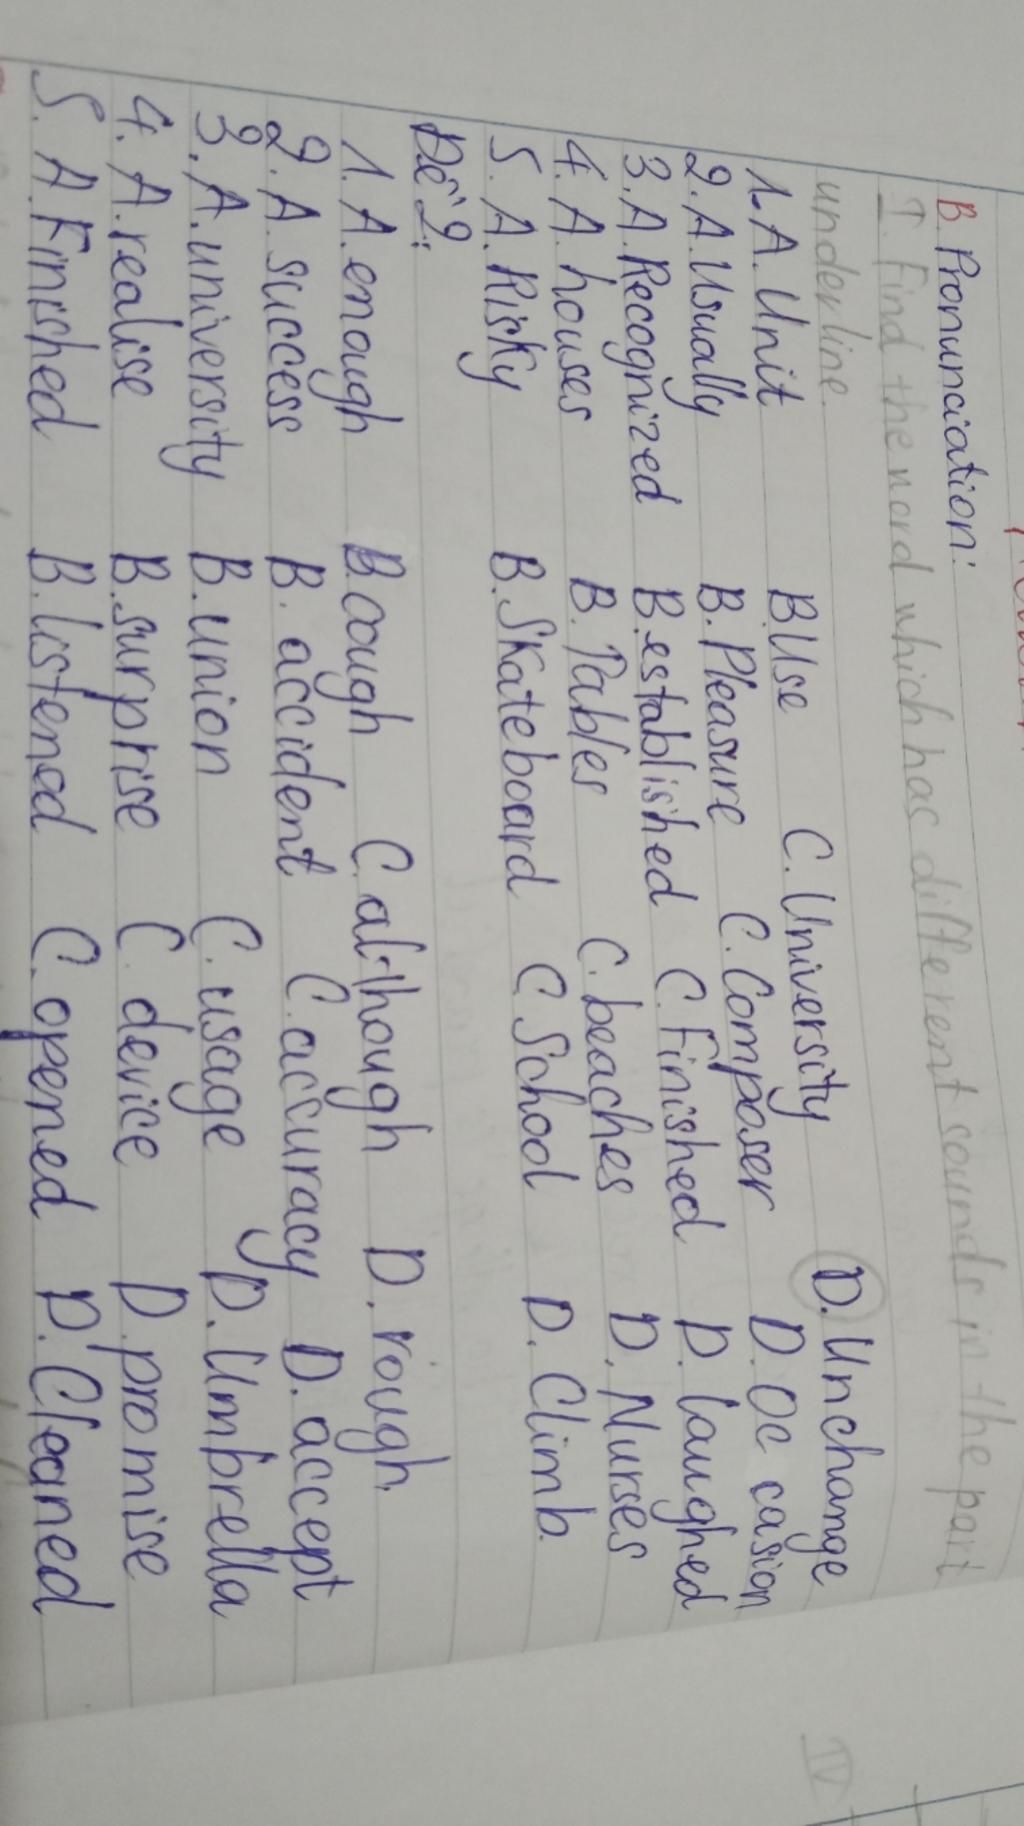 B. Pronunciation:
I. Find the word which has different sounds in the part
underline.
1. A. Unit B. Use C. University D. Unchange
2. A. Usually B. Pleasure C. Composer D. Occasion
3. A. Recognized B. established C. Finished D. laughed
4. A. houses B. Tables C. beaches D. Nurses
5. A. Risky B. Skateboard C. School D. Climb.
Đề 2:
1. A. enough B. cough C. although D. rough.
2. A. success B. accident C. accuracy D. accept
3. A. university B. union C. usage D. Umbrella
4. A. realise B. surprise C. device D. promise
5. A. Finished B. listened C. opened D. Cleaned
IV